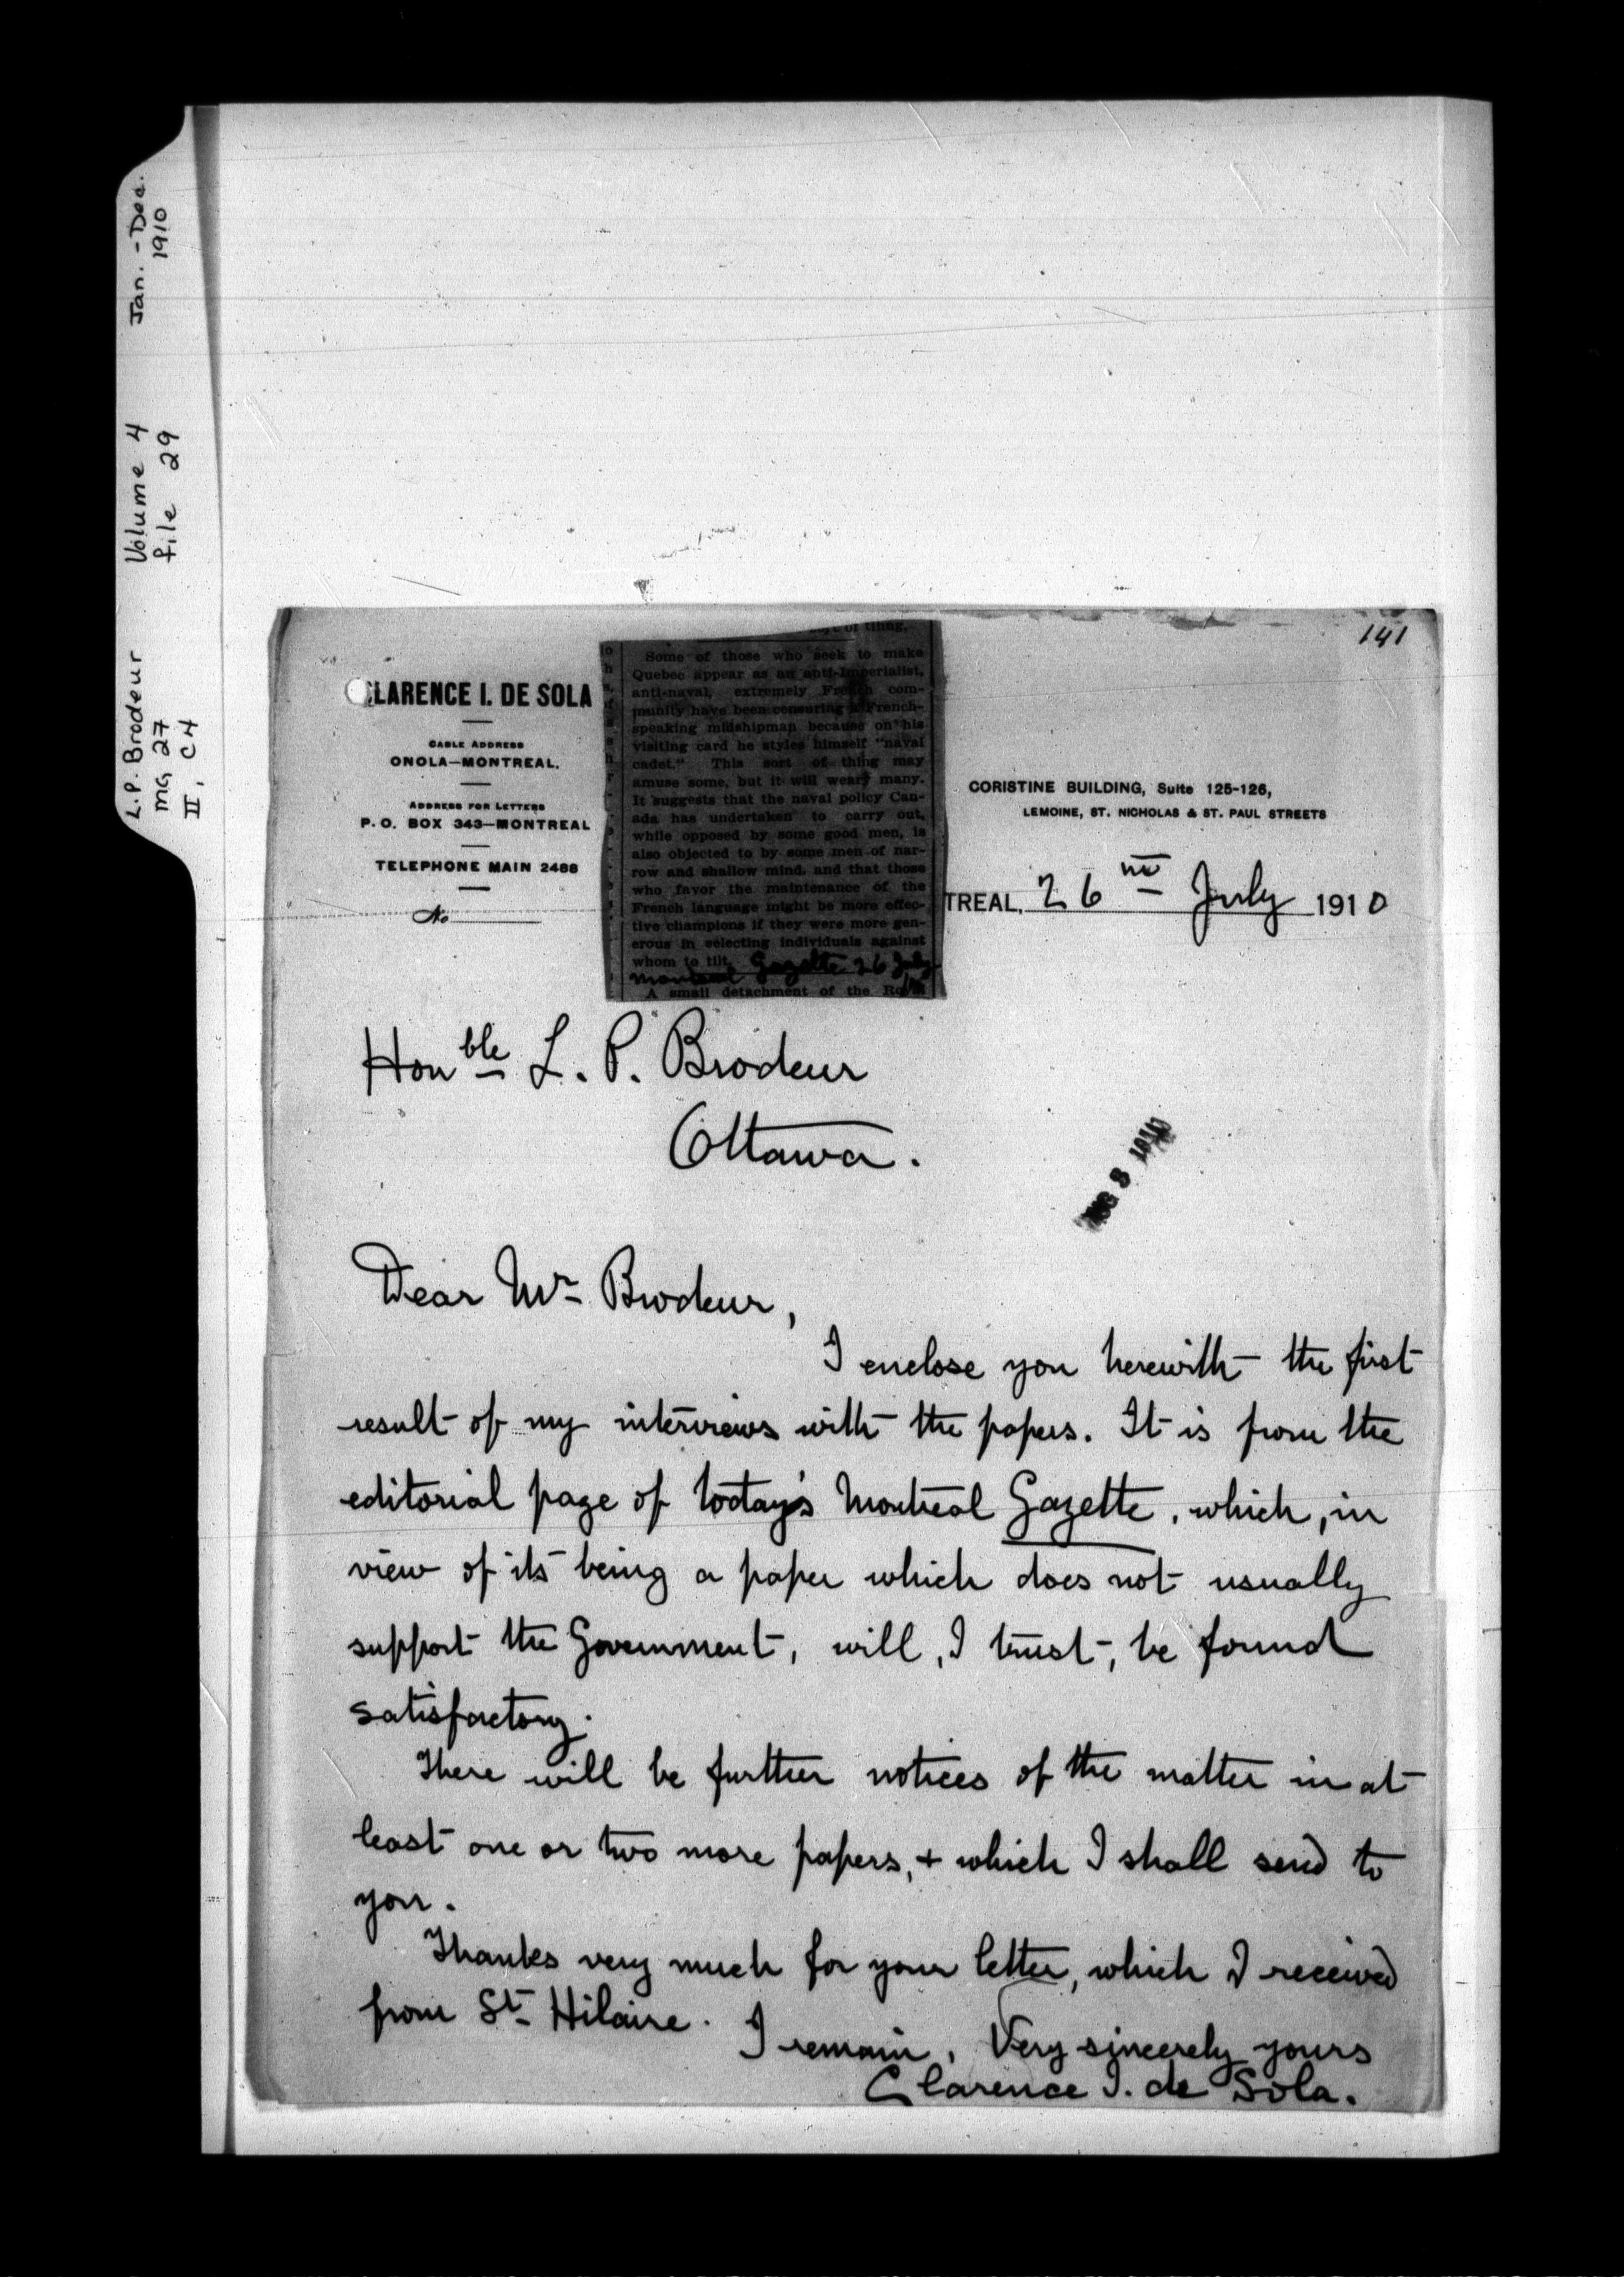 L.P. Brodeur
MG 27
II, C4
Volume 4
file 29
Jan. - Dec.
1910
141
CLARENCE I. DE SOLA
CABLE ADDRESS
ONOLA—MONTREAL.
ADDRESS FOR LETTERS
P. O. BOX 343—MONTREAL
TELEPHONE MAIN 2488
No
of thing.
Some of those who seek to make
Quebec appear as an anti-Imperialist,
anti-naval, extremely French com-
munity have been censuring a French-
speaking midshipman because on his
visiting card he styles himself "naval
cadet." This sort of thing may
amuse some, but it will weary many.
It suggests that the naval policy Can-
ada has undertaken to carry out,
while opposed by some good men, is
also objected to by some men of nar-
row and shallow mind, and that those
who favor the maintenance of the
French language might be more effec-
tive champions if they were more gen-
erous in selecting individuals against
whom to tilt.
Montreal Gazette 26 July
A small detachment of the Royal
CORISTINE BUILDING, Suite 125-126,
LEMOINE, ST. NICHOLAS & ST. PAUL STREETS
TREAL, 26 July 1910
Honble L. P. Brodeur
Ottawa.
AUG 8 1910
Dear Mr Brodeur,
I enclose you herewith the first
result of my interviews with the papers. It is from the
editorial page of today's Montreal Gazette, which, in
view of its being a paper which does not usually
support the Government, will, I trust, be found
satisfactory.
There will be further notices of the matter in at
least one or two more papers, + which I shall send to
you.
Thanks very much for your letter, which I received
from St Hilaire.
I remain, Very sincerely yours
Clarence I. de Sola.